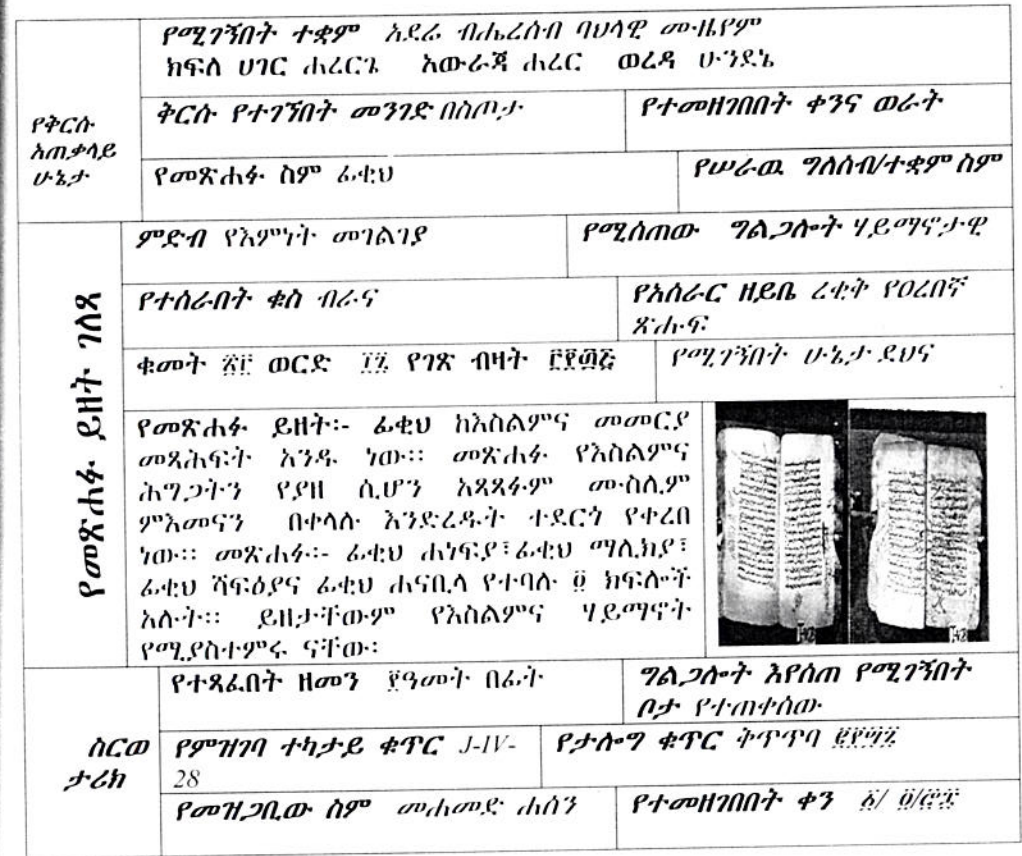 የሚገኝበት ተቋም አደሬ ብሔረሰብ ባህላዊ ሙዜየም
ክፍለ ሀገር ሐረርጌ አውራጃ ሐረር ወረዳ ሁንደኔ
የቅርሱ
አጠቃላይ
ሁኔታ
ቅርሱ የተገኘበት መንገድ በስጦታ
የተመዘገበበት ቀንና ወራት
የመጽሐፉ ስም ፊቂህ
የሠራዉ ግለሰብ/ተቋም ስም
የመጽሐፉ ይዘት ገለጻ
ምድብ የእምነት መገልገያ
የሚሰጠው ግልጋሎት ሃይማኖታዊ
የተሰራበት ቁስ ብራና
የአሰራር ዘይቤ ረቂቅ የዐረበኛ
ጽሑፍ
ቁመት ወርድ የገጽ ብዛት
የሚገኝበት ሁኔታ ደህና
የመጽሐፉ ይዘት፡- ፊቂህ ከእስልምና መመርያ
መጻሕፍት አንዱ ነው፡፡ መጽሐፉ የእስልምና
ሕግጋትን የያዘ ሲሆን አጻጻፉም ሙስሊም
ምእመናን በቀላሉ እንድረዱት ተደርጎ የቀረበ
ነው፡፡ መጽሐፉ፡- ፊቂህ ሐነፍያ፣ ፊቂህ ማሊክያ፣
ፊቂህ ሻፍዕያና ፊቂህ ሐናቢላ የተባሉ ፬ ክፍሎች
አሉት፡፡ ይዘታቸውም የእስልምና ሃይማኖት
የሚያስተምሩ ናቸው፡
ስርወ
ታሪክ
የተጻፈበት ዘመን ፻ዓመት በፊት
ግልጋሎት እየሰጠ የሚገኝበት
ቦታ የተጠቀሰው
የምዝገባ ተካታይ ቁጥር J-IV-
28
የታሎግ ቁጥር ቅጥጥባ
የመዝጋቢው ስም መሐመድ ሐሰን
የተመዘገበበት ቀን